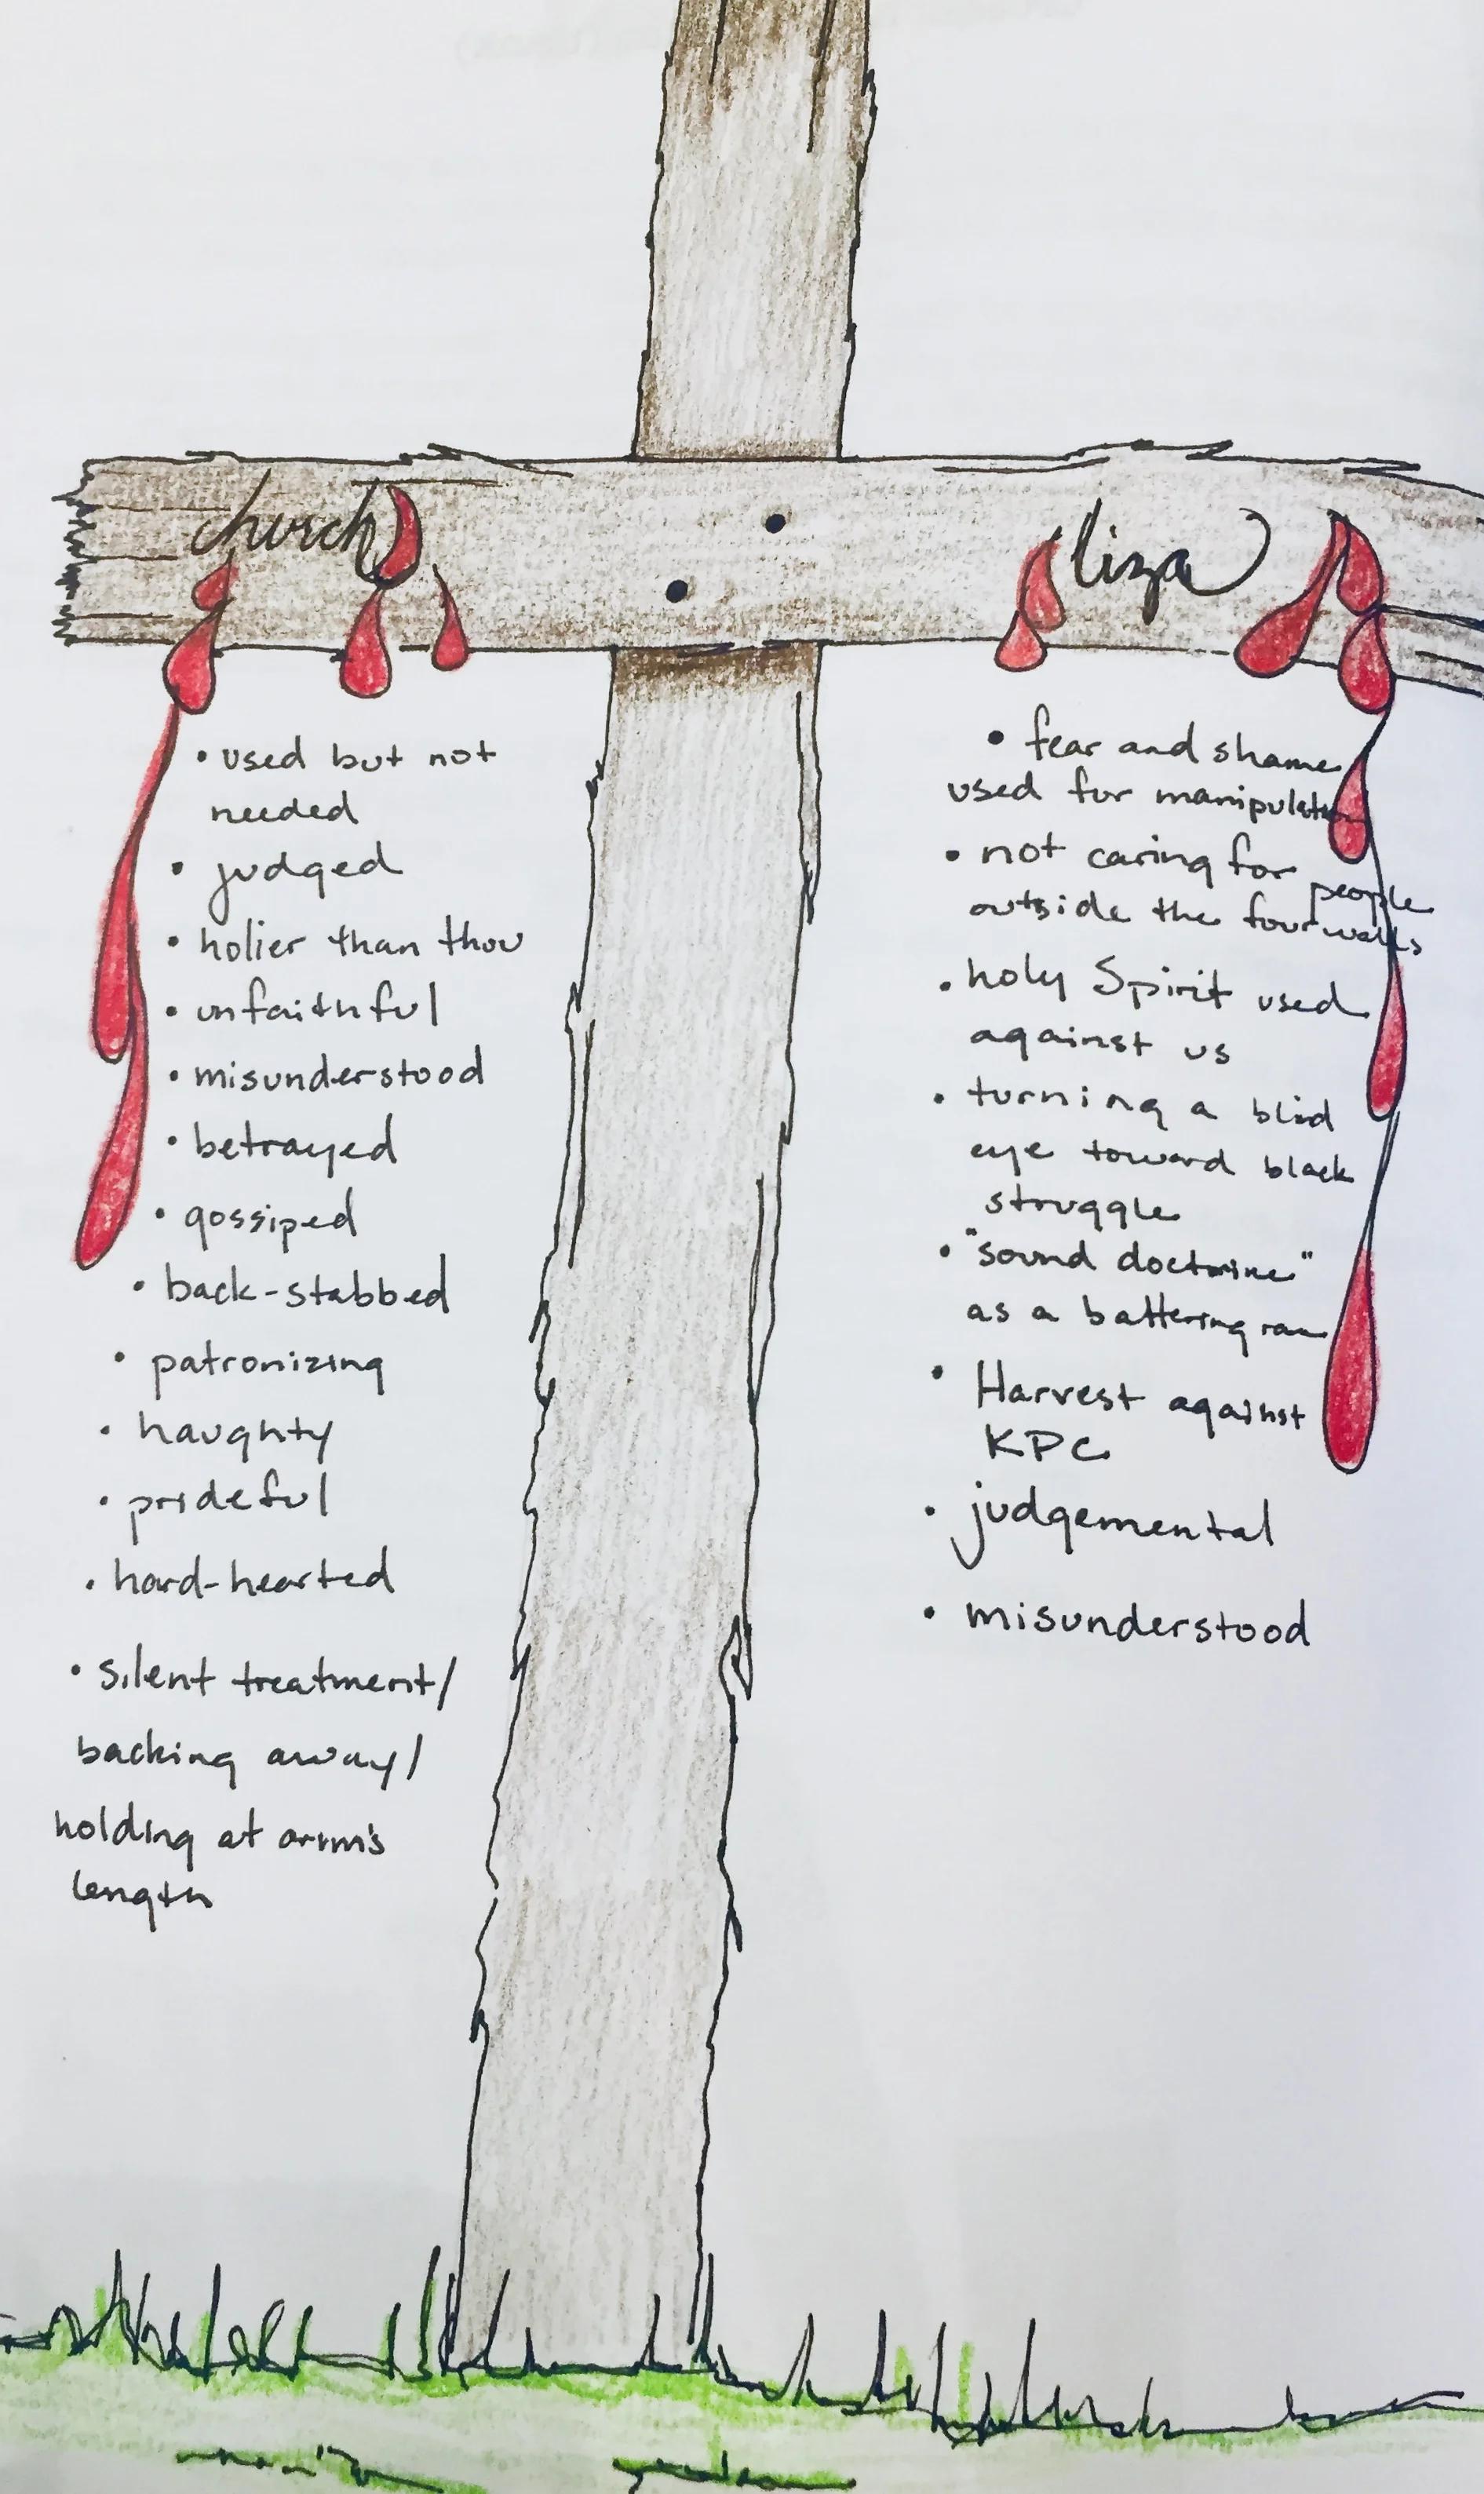 church
• used but not
needed
• judged
• holier than thou
• unfaithful
• misunderstood
• betrayed
• gossiped
• back-stabbed
• patronizing
• haughty
• prideful
• hard-hearted
• silent treatment/
backing away/
holding at arm's
length
liza
• fear and shame
used for manipulation
• not caring for people
outside the four walls
• holy Spirit used
against us
• turning a blind
eye toward black
struggle
• "sound doctrine"
as a battering ram
• Harvest against
KPC
• judgemental
• misunderstood